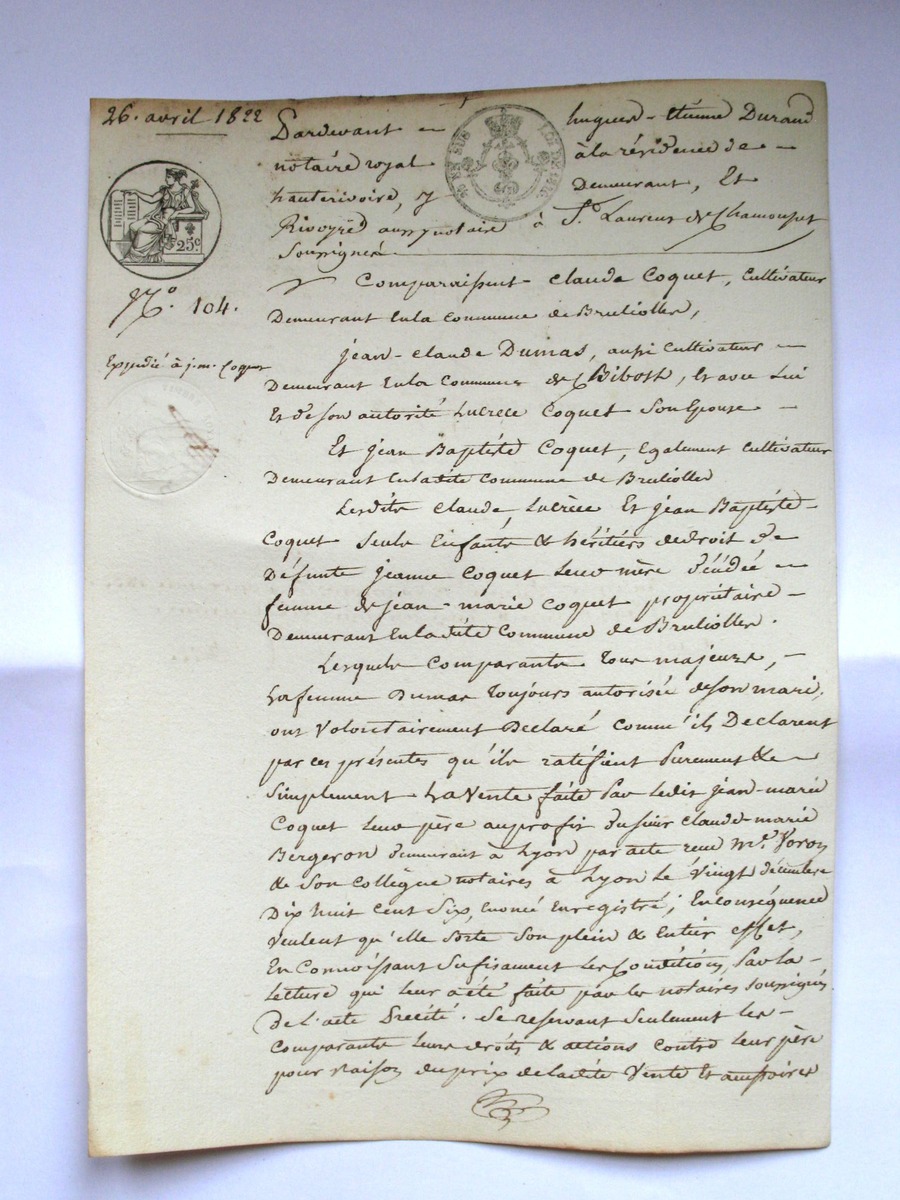 26. avril 1822
Pardevant hugues-Etienne Durand
notaire royal à la résidence de
hauterivoire, y Demeurant, Et
Rivoyred aussy notaire à St. Laurens de Chamousset
Soussignés.
25c
N.o 104.
Comparaissent Claude Coquet, Cultivateur
Demeurant En la Commune de Brullioller,
Expédié à j. m. Coquet
jean-Claude Dumas, aussi Cultivateur
Demeurant En la Commune de Bibost, Et avec Lui
Et de son autorité Lucrece Coquet Son Epouse
Et jean Baptiste Coquet, Egalement Cultivateur
Demeurant En ladite Commune de Brullioller
Lesdits Claude, Lucrèce Et jean Baptiste
Coquet Seuls Enfants & héritiers de droit de
Défunte jeanne Coquet Leur mère décédée
femme de jean-marie Coquet propriétaire
Demeurant En ladite Commune de Brullioller.
Lesquels Comparants tous majeurs,
La femme Dumas toujours autorisée de son mari,
ont Volontairement Déclaré Comm'ils Déclarent
par ces présentes qu'ils ratéfient Purement &
Simplement La Vente faite Par Ledit jean-marie
Coquet Leur père au profit du sieur Claude-marie
Bergeron demeurant à Lyon par acte reçu Me.
& Son Collègue notaires à Lyon Le Vingt décembre
Dix huit Cent Six, Enoncé Enregistré; En Conséquence
Veulent qu'elle Sorte Son plein & Entier Effet,
En Connoissant Sufisament Les Conditions, Par La
Lecture qui leur a été faite par les notaires Soussignés
De l'acte Précité. Se reservant Seulement les
Comparants leurs droits & actions Contre Leur père
pour Raison du prix de ladite Vente Et